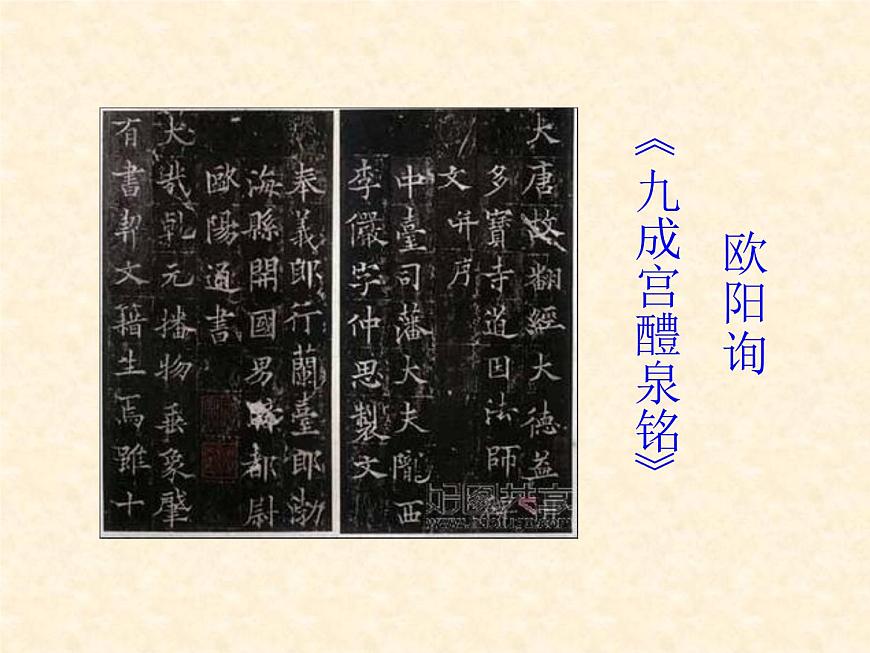 欧阳询
《九成宫醴泉铭》
大唐故翻經大德益
多寶寺道因法師
文并序
中臺司藩大夫隴西
李儼字仲思製文
奉義郎行蘭臺郎渤
海縣開國男騎都尉
歐陽通書
大哉乾元播物垂象肇
有書契文籍生焉雖十